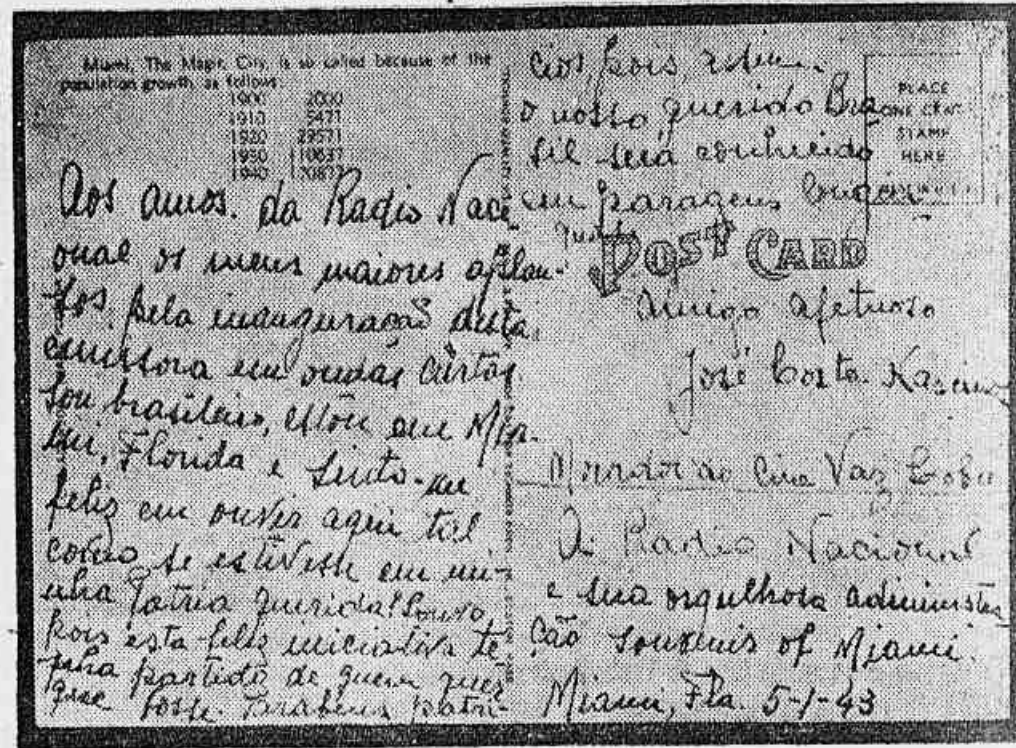 Miami, The Magic City, is so called because of the
population growth as follows:
1900 2000
1910 5471
1920 29571
1930 110637
1940
Aos amos. da Radio Naci-
onal os meus maiores aplau-
sos pela inauguração desta
emissora em ondas curtas.
Sou brasileiro, estou em Mia-
mi, Florida e sinto-me
feliz em ouvir aqui tal
como se estivesse em mi-
nha Patria querida! Louvo
pois esta feliz iniciativa te-
nha partido de quem quer
que fosse. Parabens patri-
cios, pois assim
o nosso querido Bra-
sil será conhecido
em paragens longin-
quas
PLACE
ONE CENT
STAMP
HERE
POST CARD
Amigo afetuoso
José Costa
Morador do Cine Vaz Lobo
A Radio Nacional
e sua orgulhosa administra
ção souvenis of Miami.
Miami, Fla. 5-1-43